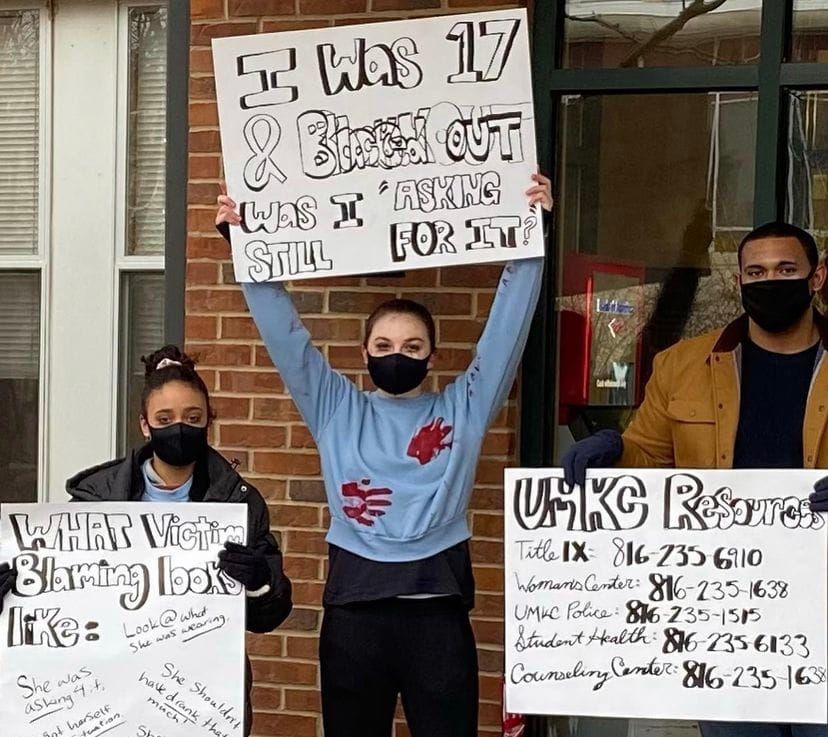 I Was 17
& Blacked OUT
Was I "ASKING
STILL FOR IT?
WHAT Victim
Blaming looks
like:
Look@what
she was wearing.
She was
asking 4 it.
She shouldn't
have drank that
much!
herself
situation.
UMKC Resources
Title IX: 816-235-6910
Womans Center: 816-235-1638
UMKC Police: 816-235-1515
Student Health: 816-235-6133
Counseling Center: 816-235-1638